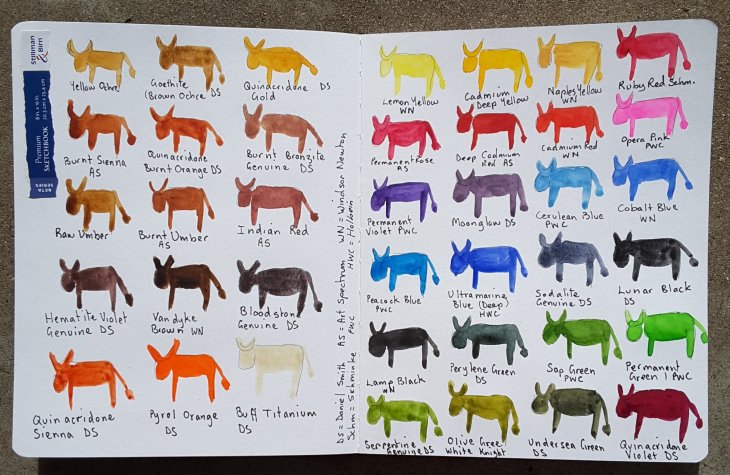 Stillman
& Birn
Premium
SKETCHBOOK
8 in. x 10 in.
20.3 cm x 25.4 cm
BETA
SERIES
Yellow Ochre
Goethite
(Brown Ochre) DS
Quinacridone DS
Gold
Burnt Sienna
AS
Quinacridone
Burnt Orange DS
Burnt Bronzite
Genuine DS
Raw Umber
Burnt Umber
AS
Indian Red
AS
Hematite Violet
Genuine DS
Vandyke
Brown WN
Bloodstone
Genuine DS
Quinacridone
Sienna DS
Pyrol Orange
DS
Buff Titanium
DS
DS = Daniel Smith AS = Art Spectrum WN = Windsor Newton
Schm = Schminke PWC HWC = Holbein
Lemon Yellow
WN
Cadmium
Deep Yellow
Naples Yellow
WN
Ruby Red Schm.
Permanent Rose
AS
Deep Cadmium
Red AS
Cadmium Red
WN
Opera Pink
PWC
Permanent
Violet PWC
Moonglow DS
Cerulean Blue
PWC
Cobalt Blue
WN
Peacock Blue
PWC
Ultramarine
Blue (Deep)
HWC
Sodalite
Genuine DS
Lunar Black
DS
Lamp Black
WN
Perylene Green
DS
Sap Green
PWC
Permanent
Green 1 PWC
Serpentine
Genuine DS
Olive Green
White Knight
Undersea Green
DS
Quinacridone
Violet DS